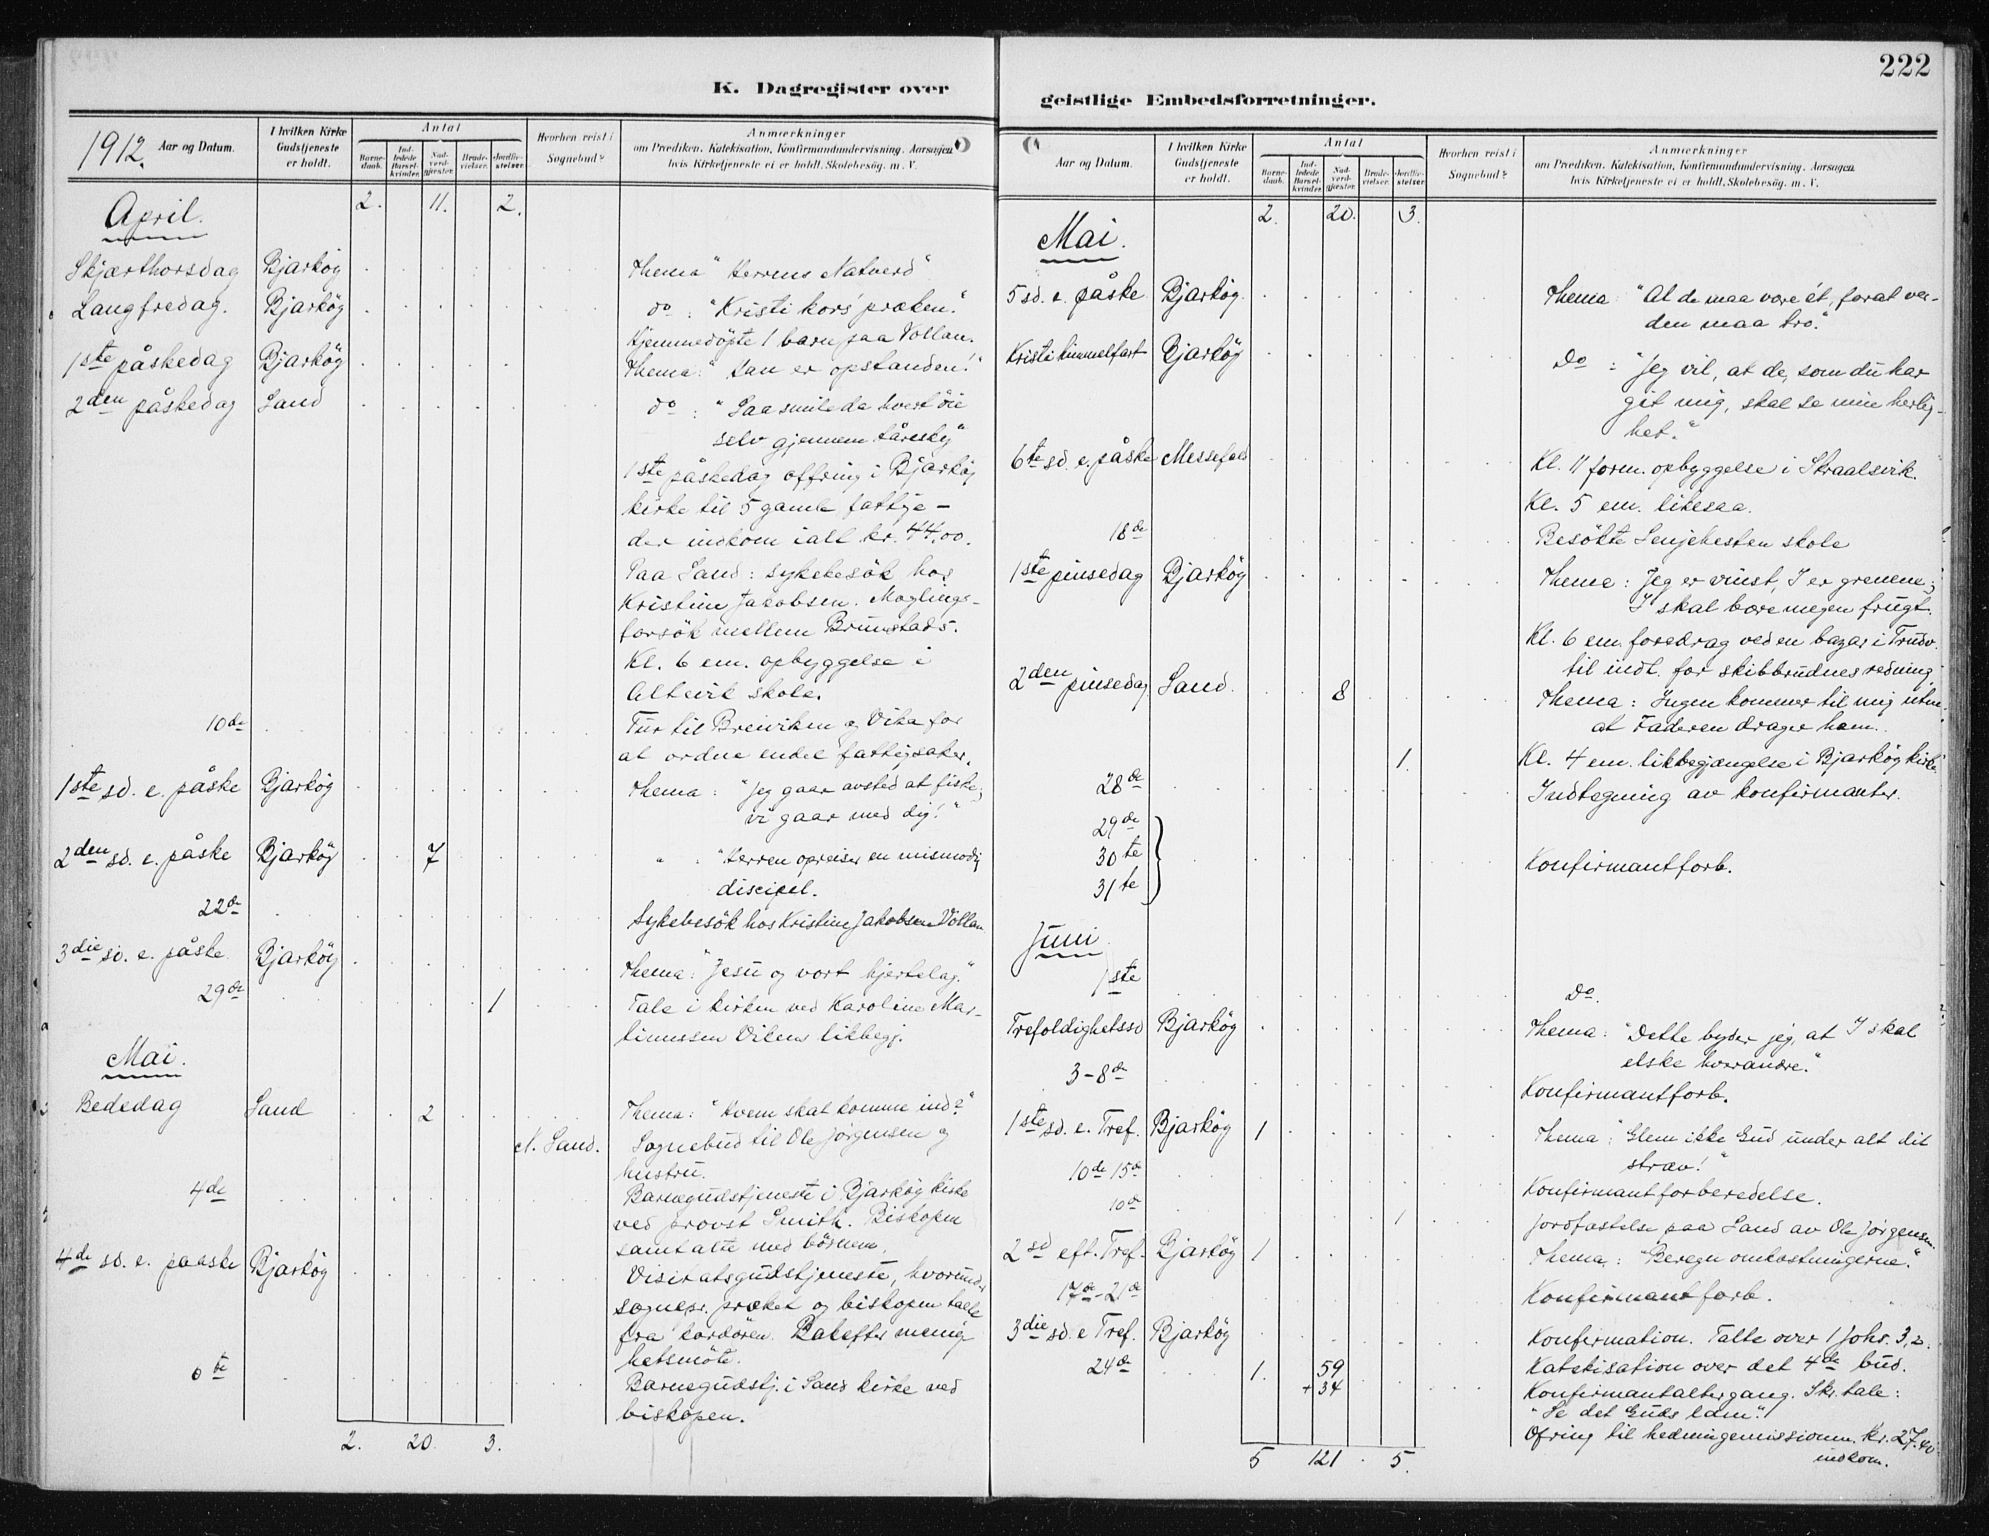 222
K. Dagregister over
1912. Aar og Datum.
I hvilken Kirke Gudstjeneste er holdt.
Antal
Barnedaab.
Indledede Barselkvinder.
Nadverdgjester.
Brudevielser.
Jordfæstelser
Hvorhen reist i Sognebud?
Anmærkninger
om Prædiken, Katekisation, Konfirmandundervisning, Aarsagen
hvis Kirketjeneste ei er holdt, Skolebesøg. m. V.
April. 2. 11. 2.
Skjærthorsdag Bjarkøy Thema "Herrens Natverd"
Langfredag. Bjarkøy do : "Kristi kors' præken."
Hjemmedöpte 1 barn paa Vollan.
1ste påskedag Bjarkøy Thema: "Han er opstanden!"
2den påskedag Sand do : "Saa smile da hvert öie
selv gjennem tåresky"
1ste påskedag offring i Bjarköy
kirke til 5 gamle fattige –
der indkom ialt kr. 44,00.
Paa Sand: sykebesök hos
Kristine Jakobsen. Mæglings-
forsök mellem Brunstads.
Kl. 6 em. opbyggelse i
Altevik skole.
10de Tur til Breiviken og Vika for
at ordne endel fattigsaker.
1ste sd. e. påske Bjarköy Thema : "Jeg gaar avsted at fiske;
vi gaar med dig!"
2den sd. e. påske Bjarköy 7 " : "Herren opreiser en mismodig
discipel.
22de Sykebesök hos Kristine Jakobsen Vollan
3die sd. e. påske Bjarköy Thema: "Jesu og vort hjertelag."
29de 1 Tale i kirken ved Karoline Mar-
tinussen Vikens likbegj.
Mai.
Bededag Sand 2 Thema: "Hvem skal komme ind?"
N. Sand. Sognebud til Ole Jørgensen og
hustru.
4de Barnegudstjeneste i Bjarköy kirke
ved provst Smith. Biskopen
samtalte med börnene.
4de sd. e. paaske Bjarköy Visitatsgudstjeneste, hvorund.
sognepr. præket og biskopen talte
fra kordören. Bakefter menig
hetsmöte.
6te Barnegudstj. i Sand kirke ved
biskopen.
2. 20. 3.
geistlige Embedsforretninger.
Aar og Datum.
I hvilken Kirke Gudstjeneste er holdt.
Antal
Barnedaab.
Indledede Barselkvinder.
Nadverdgjester.
Brudevielser.
Jordfæstelser
Hvorhen reist i Sognebud?
Anmærkninger
om Prædiken, Katekisation, Konfirmandundervisning, Aarsagen
hvis Kirketjeneste ei er holdt, Skolebesøg. m. V.
Mai. 2. 20. 3.
5 sd. e. påske Bjarköy. Thema: "At de maa være ét, forat ver-
den maa tro."
Kristi himmelfart Bjarköy Do : "Jeg vil, at de, som du har
git mig, skal se min herlig-
het."
6te sd. e. påske Messefald Kl. 11 form. opbyggelse i Skraalsvik.
Kl. 5 em. likesaa.
18de Besökte Senjehesten skole
1ste pinsedag Bjarköy Thema : Jeg er vint., I er grenene;
I skal bære megen frugt.
Kl. 6 em. foredrag ved en bazar i Trudv.
til indt. for skibbrudnes redning
2den pinsedag Sand. 8 Thema : Ingen kommer til mig uten
at Faderen drager ham.
1. Kl. 4 em. likbegjængelse i Bjarköy kirke
28de Indtegning av konfirmanter.
29de
30te Konfirmantforb.
31te
Juni
1ste Do.
Trefoldighetssd Bjarköy Thema: "Dette byder jeg, at I skal
elske hverandre."
3–8de Konfirmantforb.
1ste sd. e. Tref. Bjarköy 1 Thema : "Glem ikke Gud under alt dit
stræv!"
10de 15de Konfirmantforberedelse.
10de 1 Jordfæstelse paa Sand av Ole Jørgensen.
2 sd eft. Tref. Bjarköy 1 Thema : "Beregn omkostningerne."
17de–21de Konfirmantforb.
3die sd. e Tref. Bjarköy Konfirmation. Talte over 1 Johs. 3,2.
24de 1. 59 Katekisation over det 4de bud.
+ 34 Konfirmantaltergang. Skr. tale:
"Se det Guds lam".
Ofring til hedningemissionen. Kr. 27.40
indkom.
5 121 5.